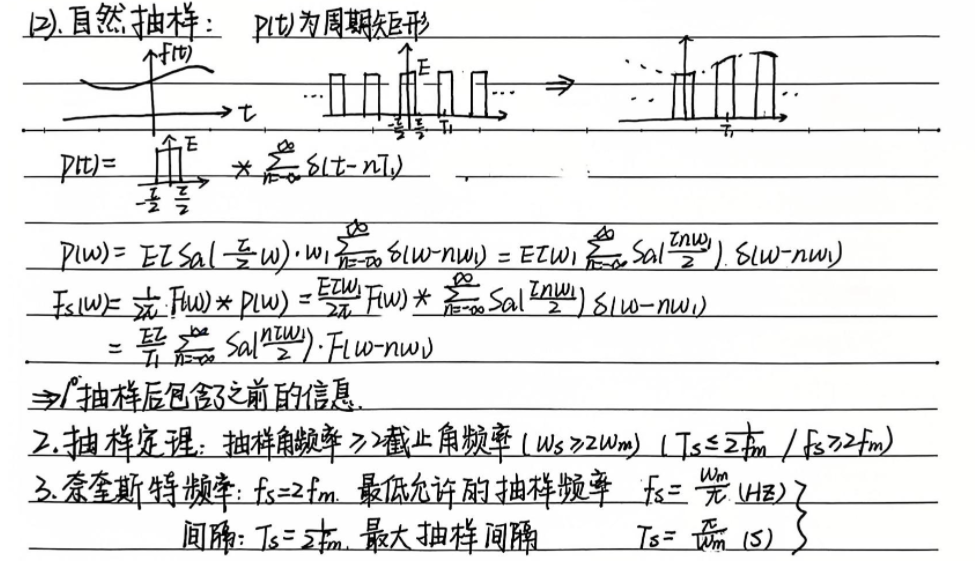 (2). 自然抽样: p(t)为周期矩形
f(t) t ... E -τ/2 τ/2 T₁ ... ⇒ ... T₁ ..
p(t) = E -τ/2 τ/2 * ∑_{n=-∞}^{∞} δ(t-nT₁)
P(ω) = Eτ Sa(τ/2 ω)·ω₁ ∑_{n=-∞}^{∞} δ(ω-nω₁) = Eτω₁ ∑_{n=-∞}^{∞} Sa(τnω₁/2). δ(ω-nω₁)
Fs(ω) = 1/2π · F(ω) * P(ω) = Eτω₁/2π F(ω) * ∑_{n=-∞}^{∞} Sa(τnω₁/2) δ(ω-nω₁)
= Eτ/T₁ ∑_{n=-∞}^{∞} Sa(nτω₁/2)·F(ω-nω₁)
⇒1° 抽样后包含了之前的信息.
2. 抽样定理: 抽样角频率≥2截止角频率 (ωs≥2ωm) (Ts≤1/2fm / fs≥2fm)
3. 奈奎斯特频率: fs=2fm. 最低允许的抽样频率 fs= ωm/π (HZ) }
间隔: Ts=1/2fm. 最大抽样间隔 Ts= π/ωm (S)